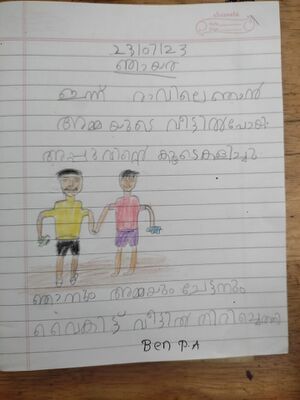 23/07/23
ഞായർ
ഇന്ന് രാവിലെ ഞാൻ
അമ്മയുടെ വീട്ടിൽ പോയി
അപ്പുവിന്റെ കൂടെ കളിച്ചു
ഞാനും അമ്മയും ചേട്ടനും
വൈകിട്ട് വീട്ടിൽ തിരിച്ചെത്തി
Ben P.A